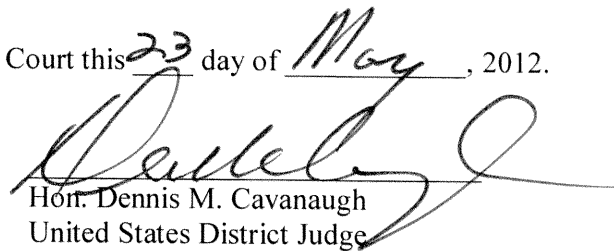 Court this 23 day of May, 2012.
Hon. Dennis M. Cavanaugh
United States District Judge